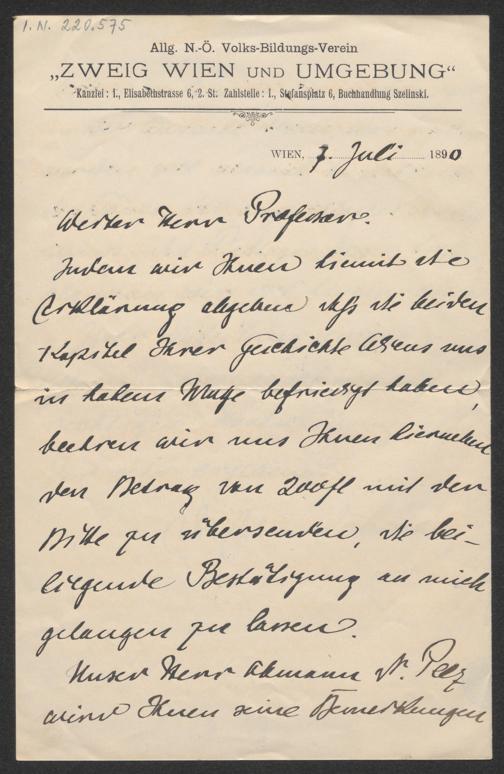 I. N. 220.575
Allg. N.-Ö. Volks-Bildungs-Verein
„ZWEIG WIEN UND UMGEBUNG“
Kanzlei: I., Elisabethstrasse 6, 2. St. Zahlstelle: I., Stefansplatz 6, Buchhandlung Szelinski.
WIEN, 7. Juli 1890
Werter Herr Professor.
Indem wir Ihnen hiemit die
Erklärung abgeben daß die beiden
Kapitel Ihrer Geschichte Wiens uns
in hohem Maße befriedigt haben,
beehren wir uns Ihnen hierneben
den Betrag von 200fl mit der
Bitte zu übersenden, die bei-
liegende Bestätigung an mich
gelangen zu lassen.
Unser Herr Obmann Dr. Peez
wird Ihnen seine Bemerkungen